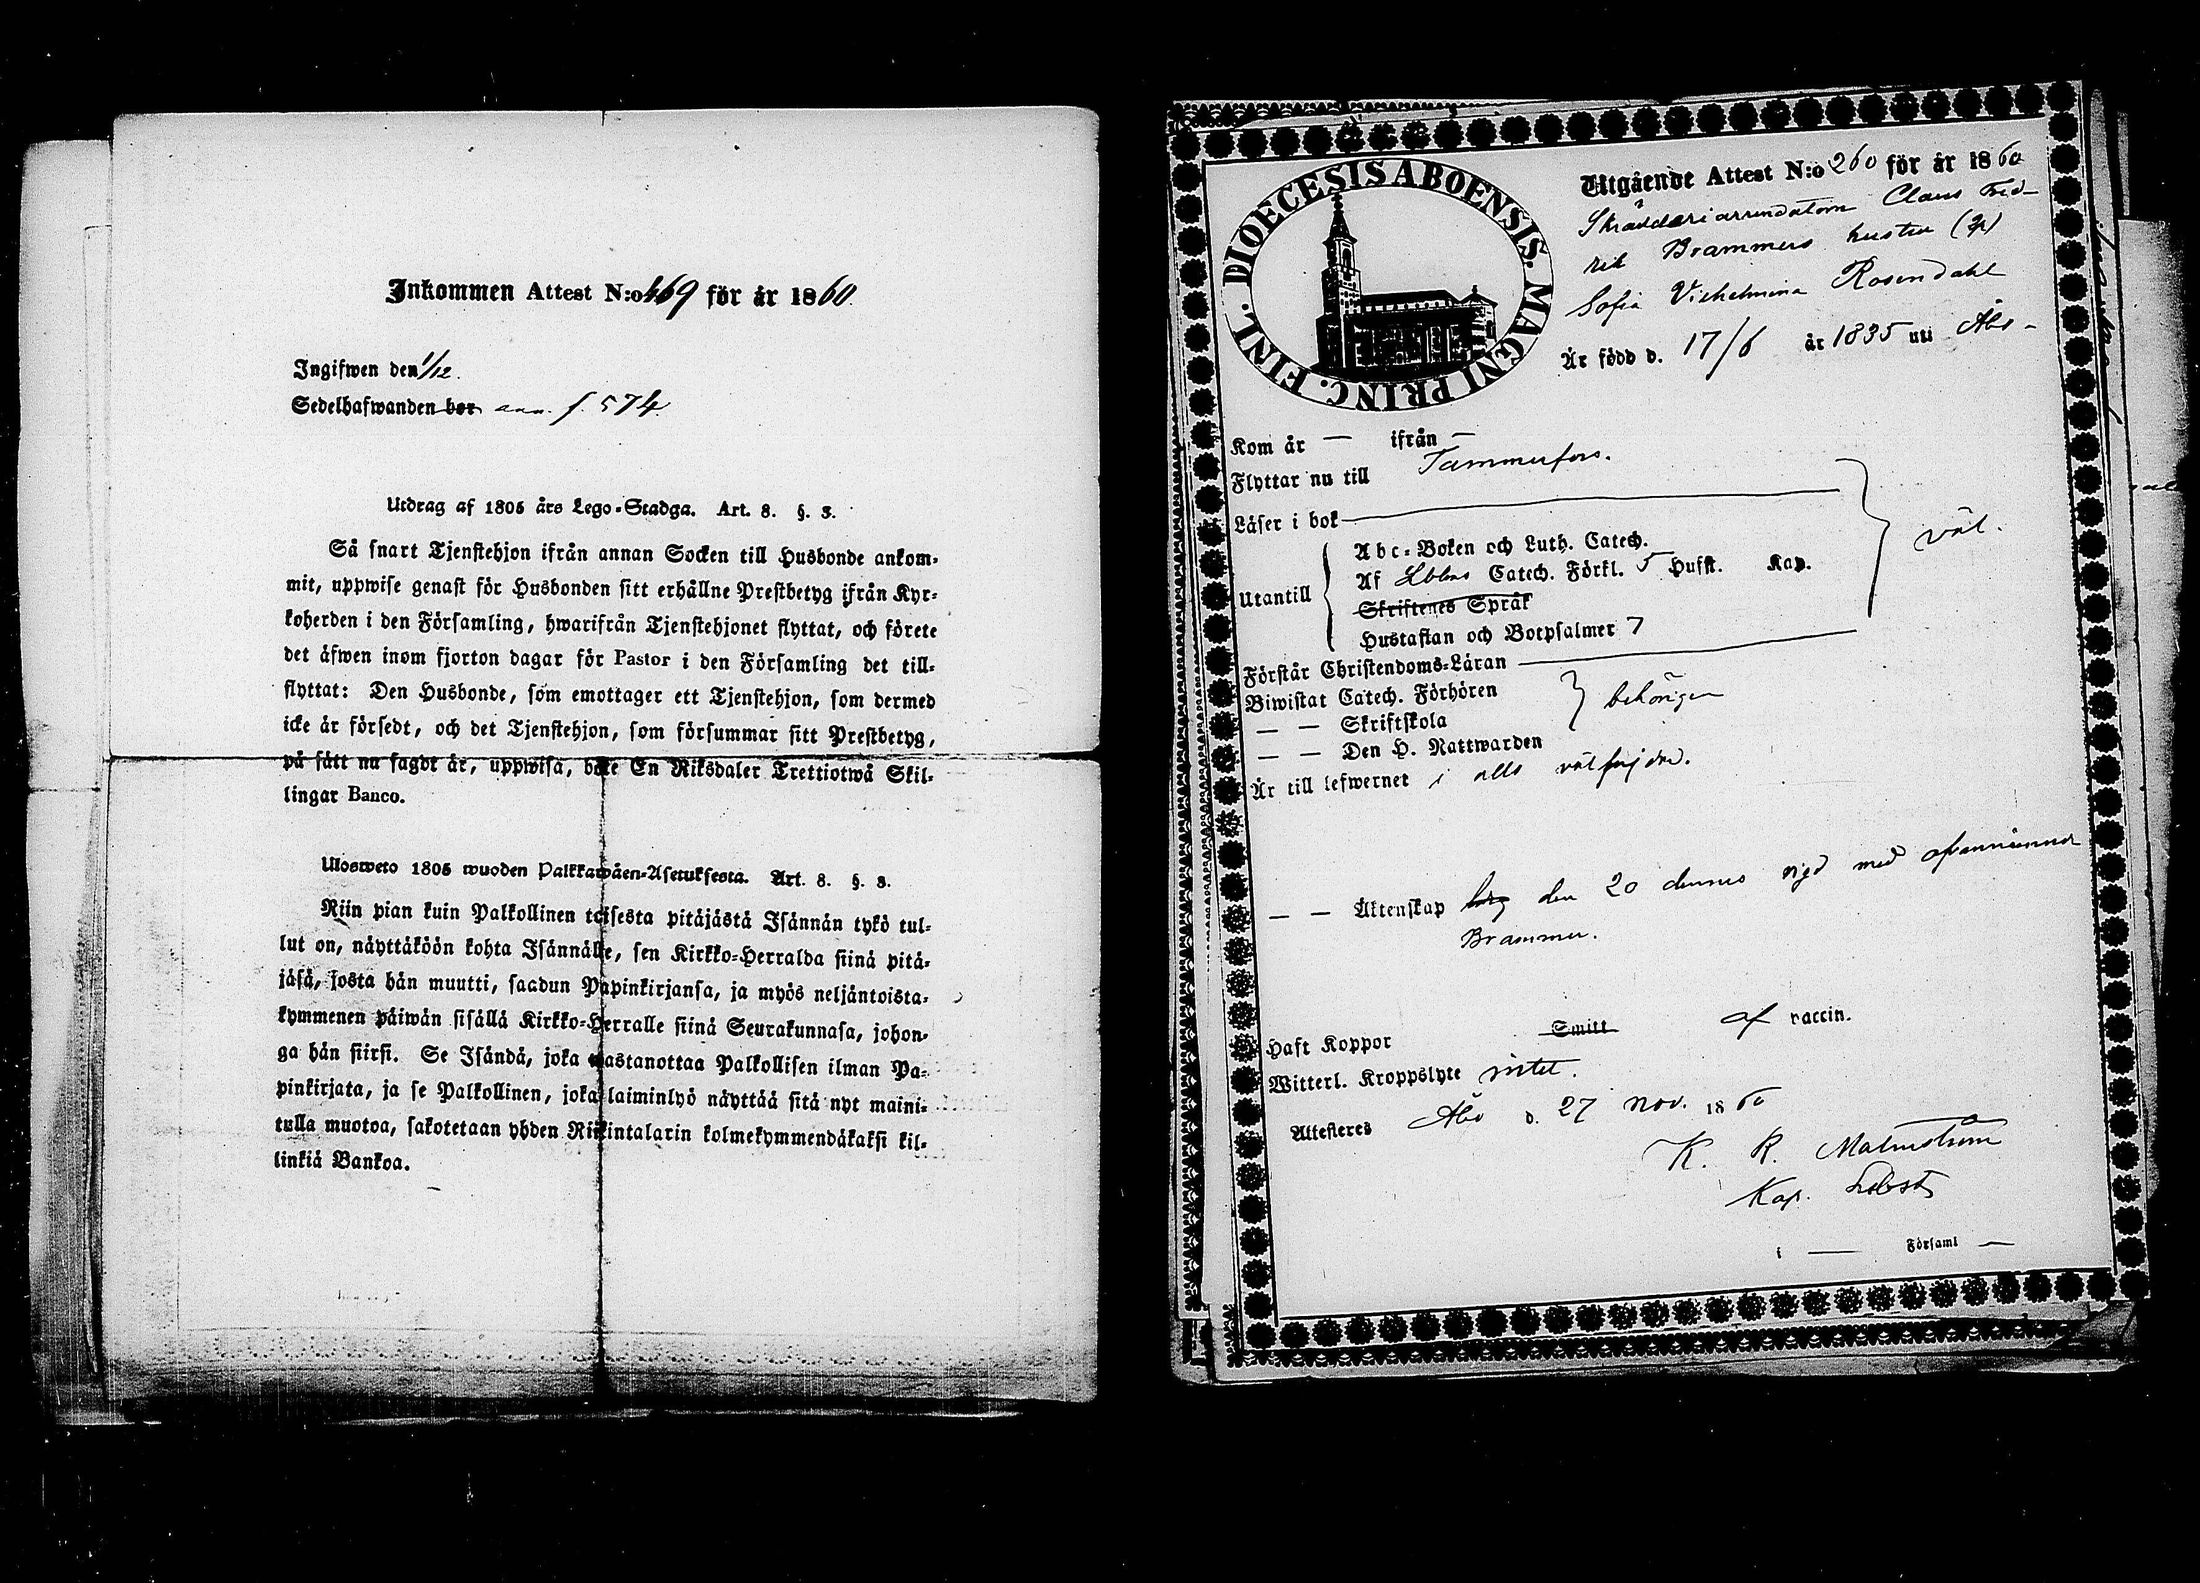 Inkommen Attest N:o 469 för år 1860
Ingifwen den 1/12.
Sedelhafwanden bor ann. f. 574.
Utdrag af 1805 års Lego-Stadga. Art. 8. §. 3.
Så snart Tjenstehjon ifrån annan Socken till Husbonde ankom-
mit, uppwise genast för Husbonden sitt erhållne Prestbetyg ifrån Kyr-
koherden i den Församling, hwarifrån Tjenstehjonet flyttat, och förete
det äfwen inom fjorton dagar för Pastor i den Församling det till-
flyttat: Den Husbonde, som emottager ett Tjenstehjon, som dermed
icke är försedt, och det Tjenstehjon, som försummar sitt Prestbetyg,
på sätt nu sagdt är, uppwisa, böte En Riksdaler Trettiotwå Skil-
lingar Banco.
Ulosweto 1805 wuoden Palkkawäen-Asetuksesta. Art. 8. §. 3.
Niin pian kuin Palkollinen toisesta pitäjästä Isännän tykö tul-
lut on, näyttäköön kohta Isännälle, sen Kirkko-Herralda siinä pitä-
jäsä, josta hän muutti, saadun Papinkirjansa, ja myös neljäntoista-
kymmenen päiwän sisällä Kirkko-Herralle siinä Seurakunnasa, johon-
ga hän siirsi. Se Isändä, joka wastanottaa Palkollisen ilman Pa-
pinkirjata, ja se Palkollinen, joka laiminlyö näyttää sitä nyt maini-
tulla muotoa, sakotetaan yhden Riikintalarin kolmekymmendäkaksi kil-
linkiä Bankoa.
DIOECESIS ABOENSIS. MAGNI PRINC. FINL.
Utgående Attest N:o 260 för år 1860
Skrädderiarrendatorn Claus Fred-
rik Brammers hustru
Sofia Vilhelmina Rosendahl
Är född d. 17/6 år 1835 uti Åbo
Kom år — ifrån —
Flyttar nu till Tammerfors.
Läser i bok
Utantill
Abc-Boken och Luth. Catech.
Af Catech. Förkl. 5 Hufst. Kap.
Skriftenes Språk
Hustaflan och Botpsalmer 7
väl.
Förstår Christendoms-Läran
Biwistat Catech. Förhören
— — Skriftskola
— — Den H. Nattwarden
behörigen
Är till lefwernet i allo välfrejdad.
— — Äktenskap den 20 dennes vigd med ofvannämnda
Brammer.
Haft Koppor Smitt af vaccin.
Witterl. Kroppslyte intet.
Attesteres Åbo d. 27 nov. 1860
K. R. Malmström
Kap.
i — Församl —